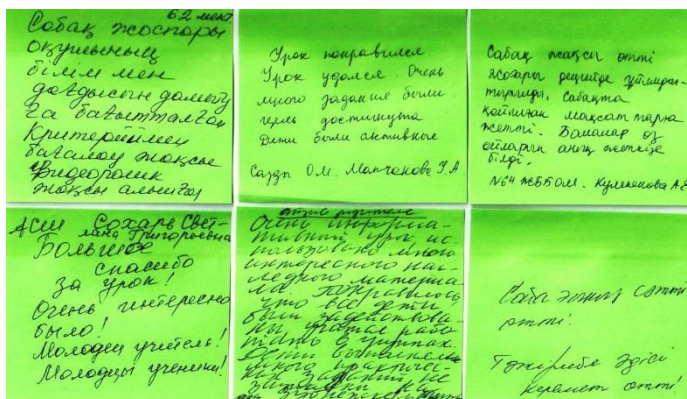 62 мект
Сабақ жоспары
оқушының
білім мен
дағдысын дамыту
ға бағытталған
Критериймен
бағалау жақсы
Видеоролик
жақсы алынған
Урок понравился
Урок удался. Очень
много задание были
цель достигнута
Дети были активные
Сагди О.М. Мапчанова У.А.
Сабақ жақсы өтті
Жоғары деңгейде ұйымдас-
тырылды. Сабақта
қойылған мақсаттарға
жетті. Балалар өз
ойларын анық жеткізе
білді.
№64 ЖББОМ. Кулекенова А.Е
АСШ Сохарь Свет-
лана Григорьевна
Большое
спасибо
за урок!
Очень интересно
было!
Молодец учитель!
Молодцы ученики!
Очень информа-
тивный урок ис-
пользовано много
интересного наг-
лядного материа-
ла. Понравилось
что все дети
были задействова-
ны, умеют рабо-
тать в группах.
Дети выполняли
много практичес-
ких заданий
Сабақ жақсы өтті
Тәжірибе әдісі
керемет өтті!